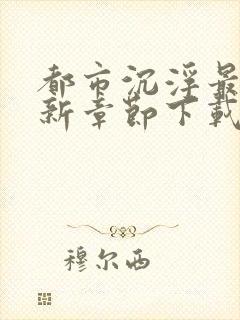 都市沉浮最
新章節下載
穆尔西